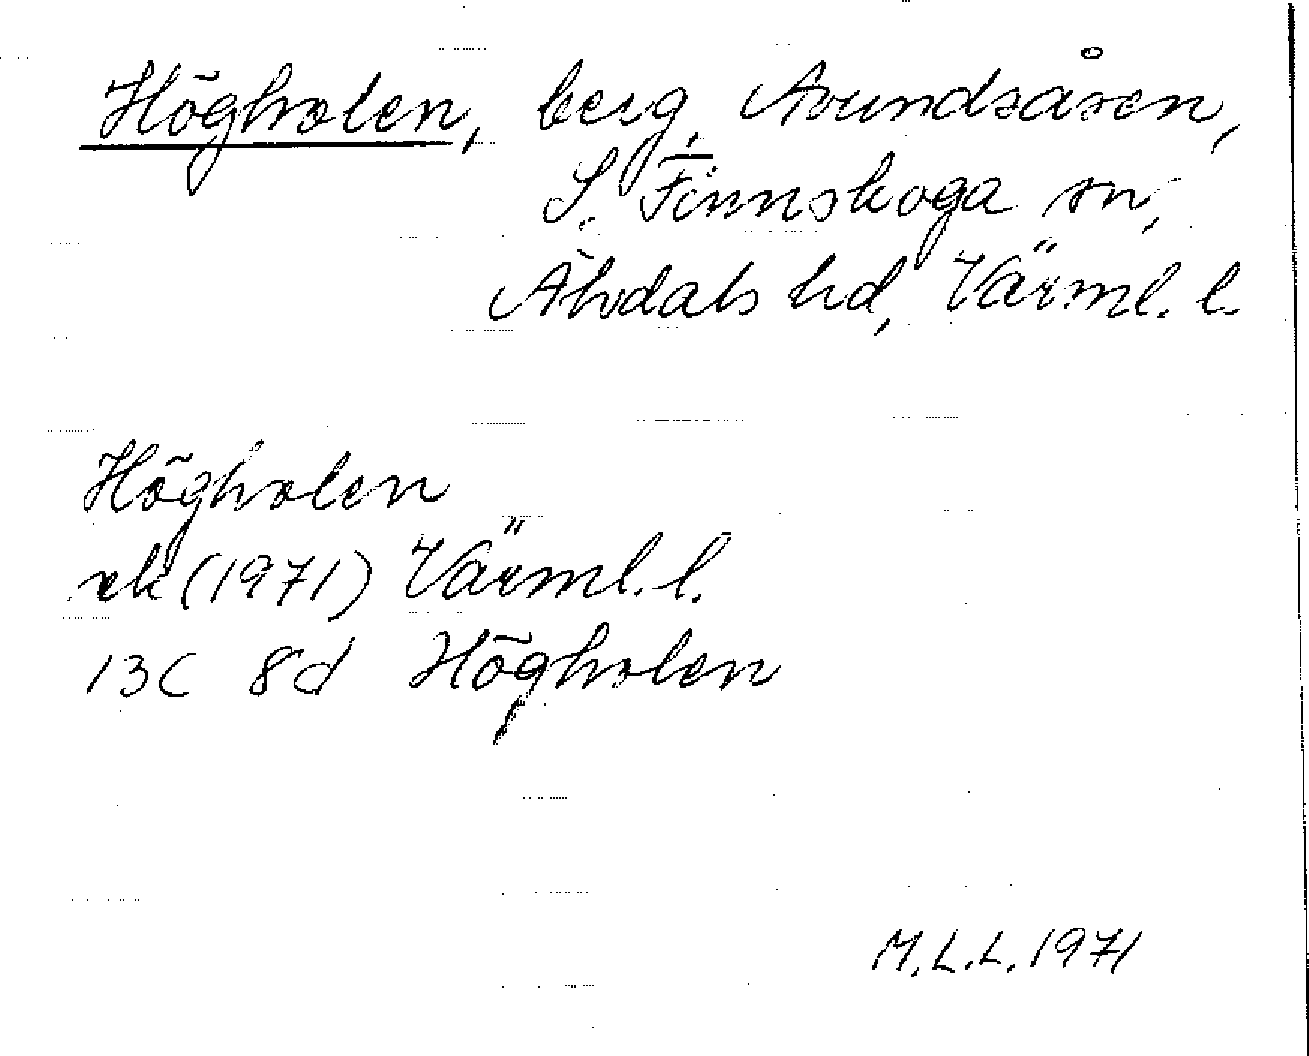 Högholen, berg, Avundsåsen,
S. Finnskoga sn,
Älvdals hd, Värml. l.
Högholen
rk (1971) Värml. l.
13C 8d Högholen
M.L.L. 1971